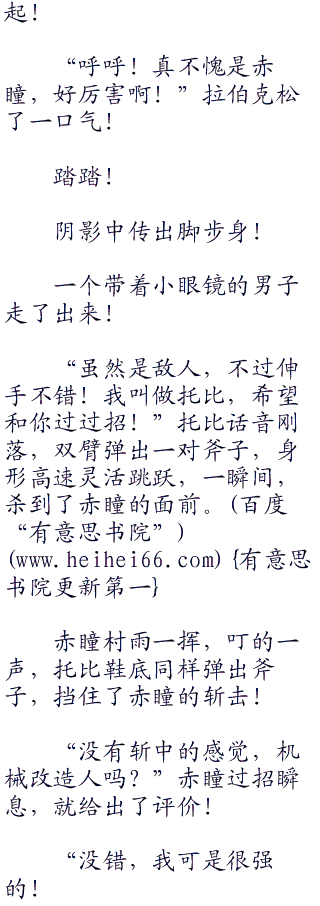 起！
“呼呼！真不愧是赤
瞳，好厉害啊！”拉伯克松
了一口气！
踏踏！
阴影中传出脚步身！
一个带着小眼镜的男子
走了出来！
“虽然是敌人，不过伸
手不错！我叫做托比，希望
和你过过招！”托比话音刚
落，双臂弹出一对斧子，身
形高速灵活跳跃，一瞬间，
杀到了赤瞳的面前。(百度
“有意思书院”)
(www.heihei66.com){有意思
书院更新第一}
赤瞳村雨一挥，叮的一
声，托比鞋底同样弹出斧
子，挡住了赤瞳的斩击！
“没有斩中的感觉，机
械改造人吗？”赤瞳过招瞬
息，就给出了评价！
“没错，我可是很强
的！